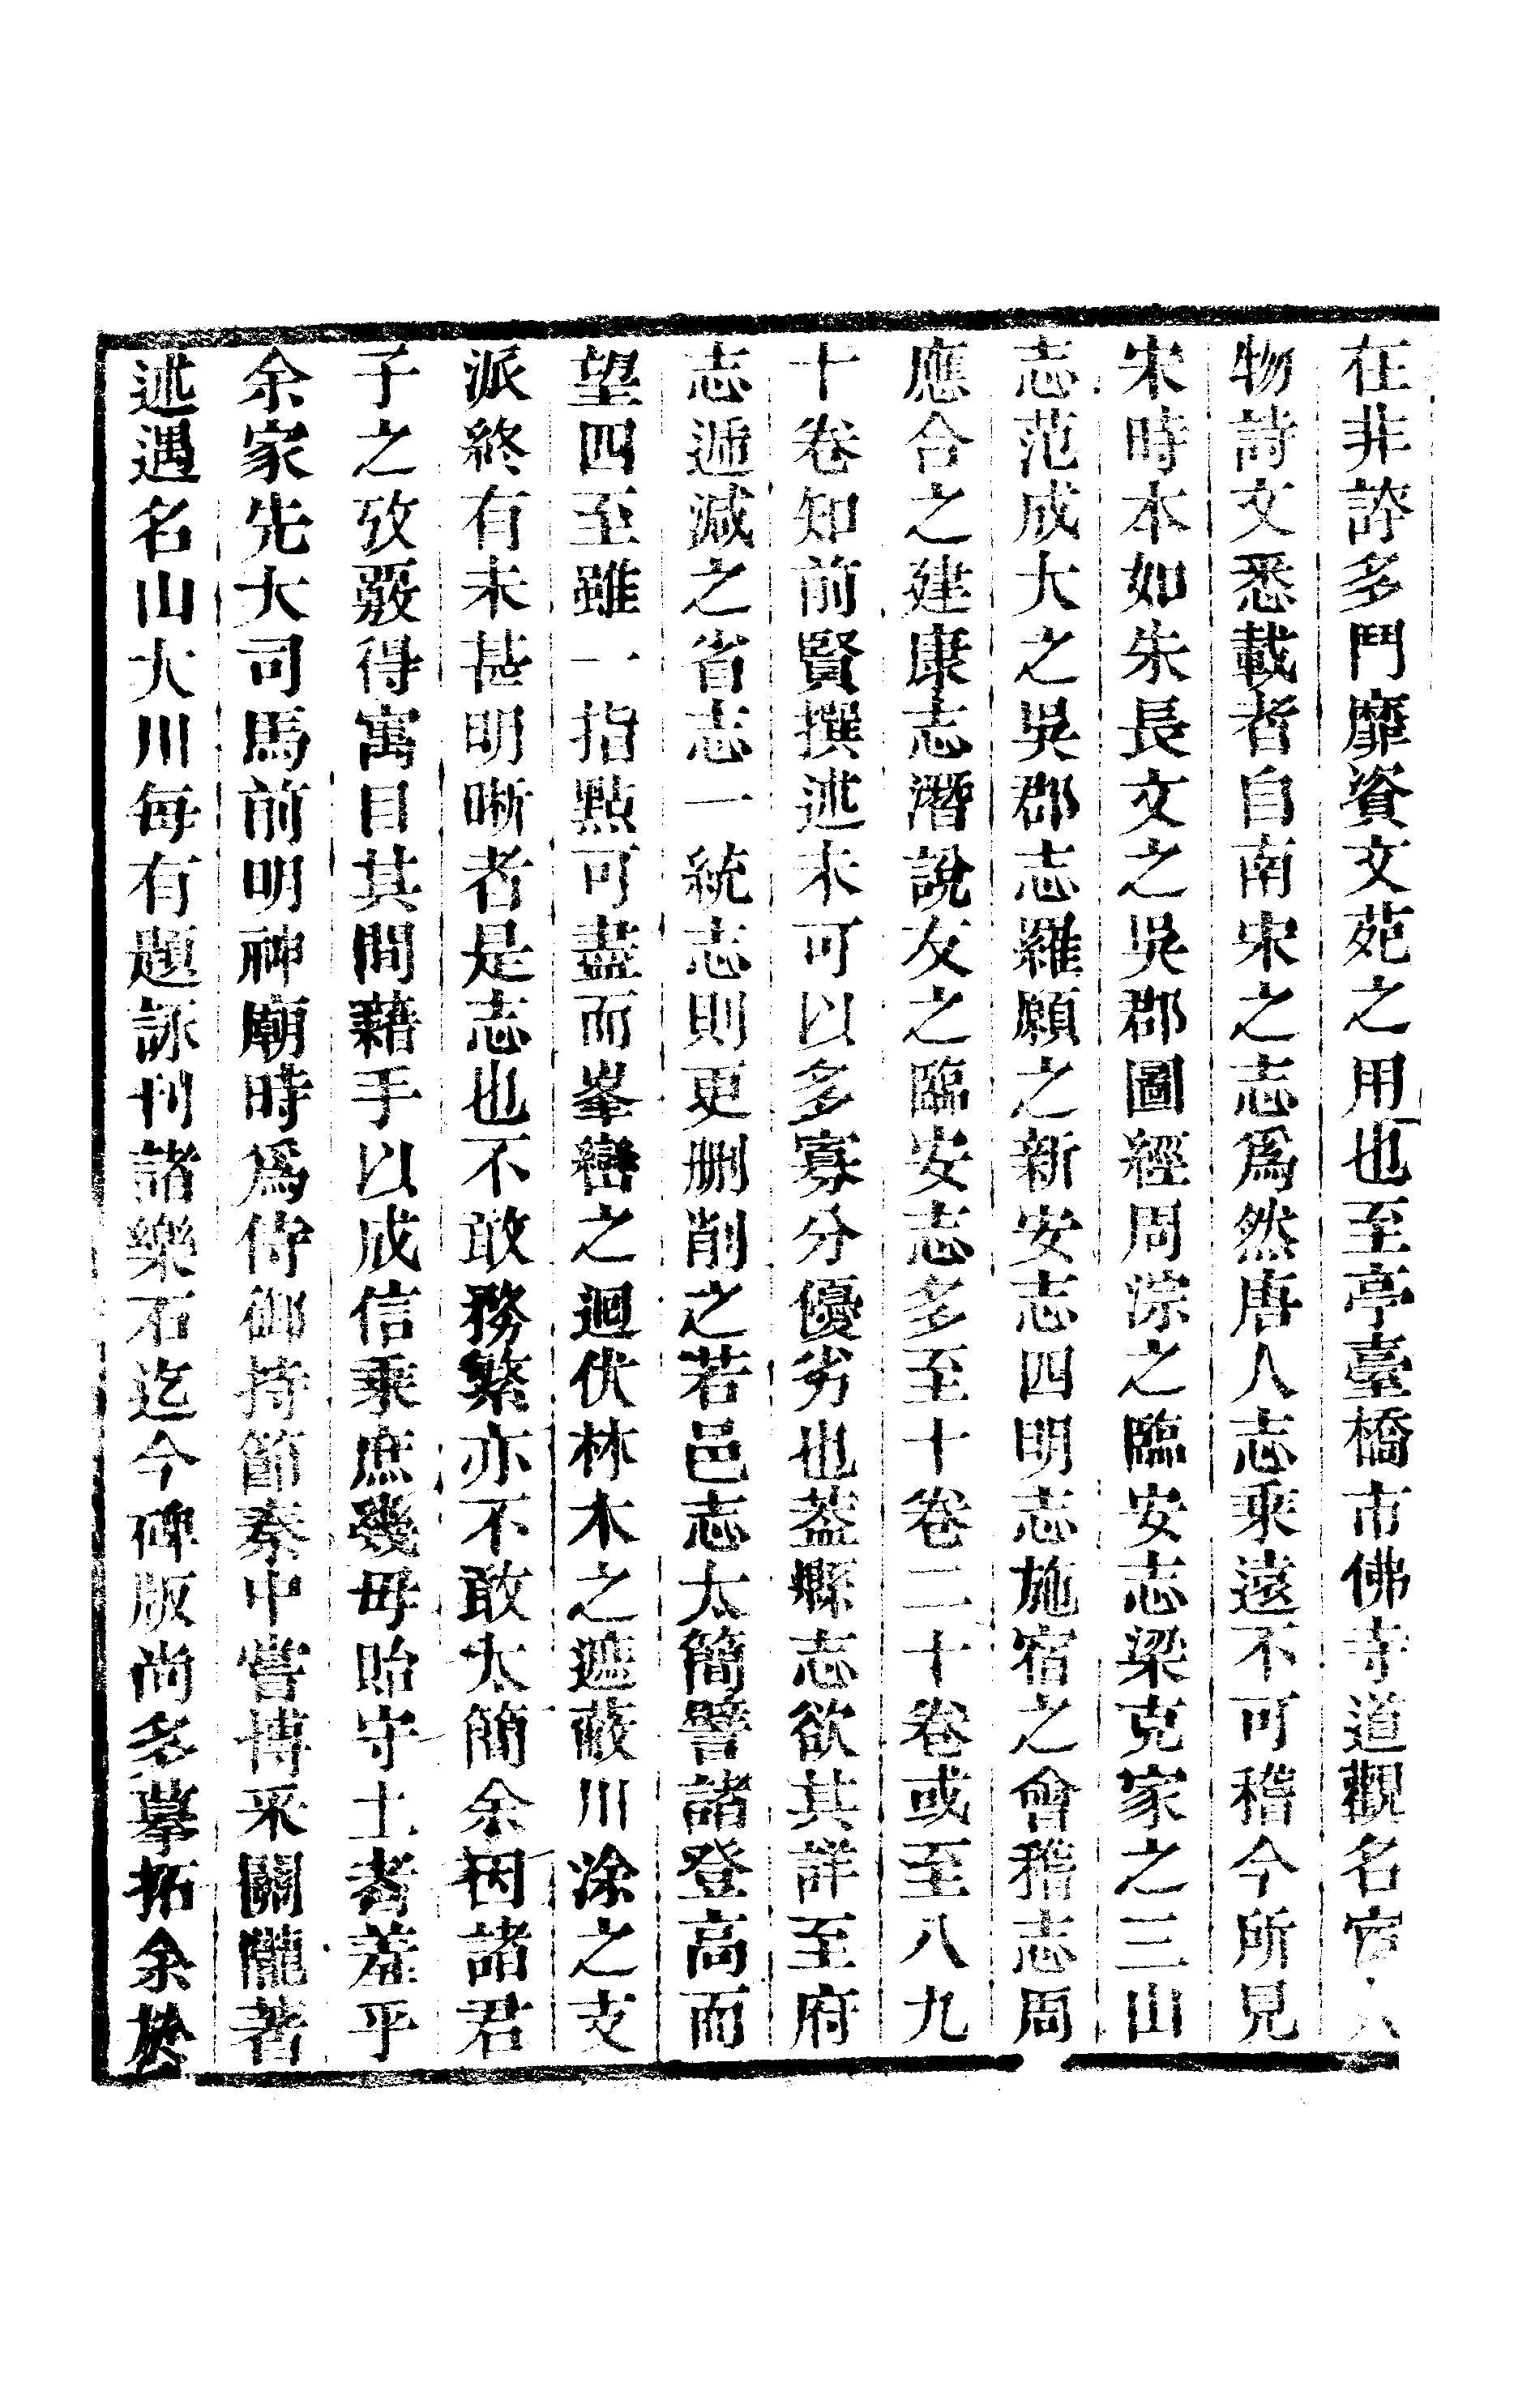 在非誇多鬥靡資文苑之用也至亭臺橋市佛寺道觀名宦人
物詩文悉載者自南宋之志爲然唐人志乘遠不可稽今所見
宋時本如朱長文之吳郡圖經周淙之臨安志梁克家之三山
志范成大之吳郡志羅願之新安志四明志施宿之會稽志周
應合之建康志潛說友之臨安志多至十卷二十卷或至八九
十卷知前賢撰述未可以多寡分優劣也葢縣志欲其詳至府
志遞減之省志一統志則更删削之若邑志太簡譬諸登高而
望四至雖一指點可盡而峯巒之迴伏林木之遮蔽川涂之支
派終有未甚明晰者是志也不敢務繁亦不敢太簡余因諸君
子之攷覈得寓目其間藉手以成信乘庶幾毋貽守土者羞乎
余家先大司馬前明神廟時爲侍御持節秦中嘗博采關隴著
述遇名山大川每有題詠刊諸樂石迄今碑版尚多摹拓余於